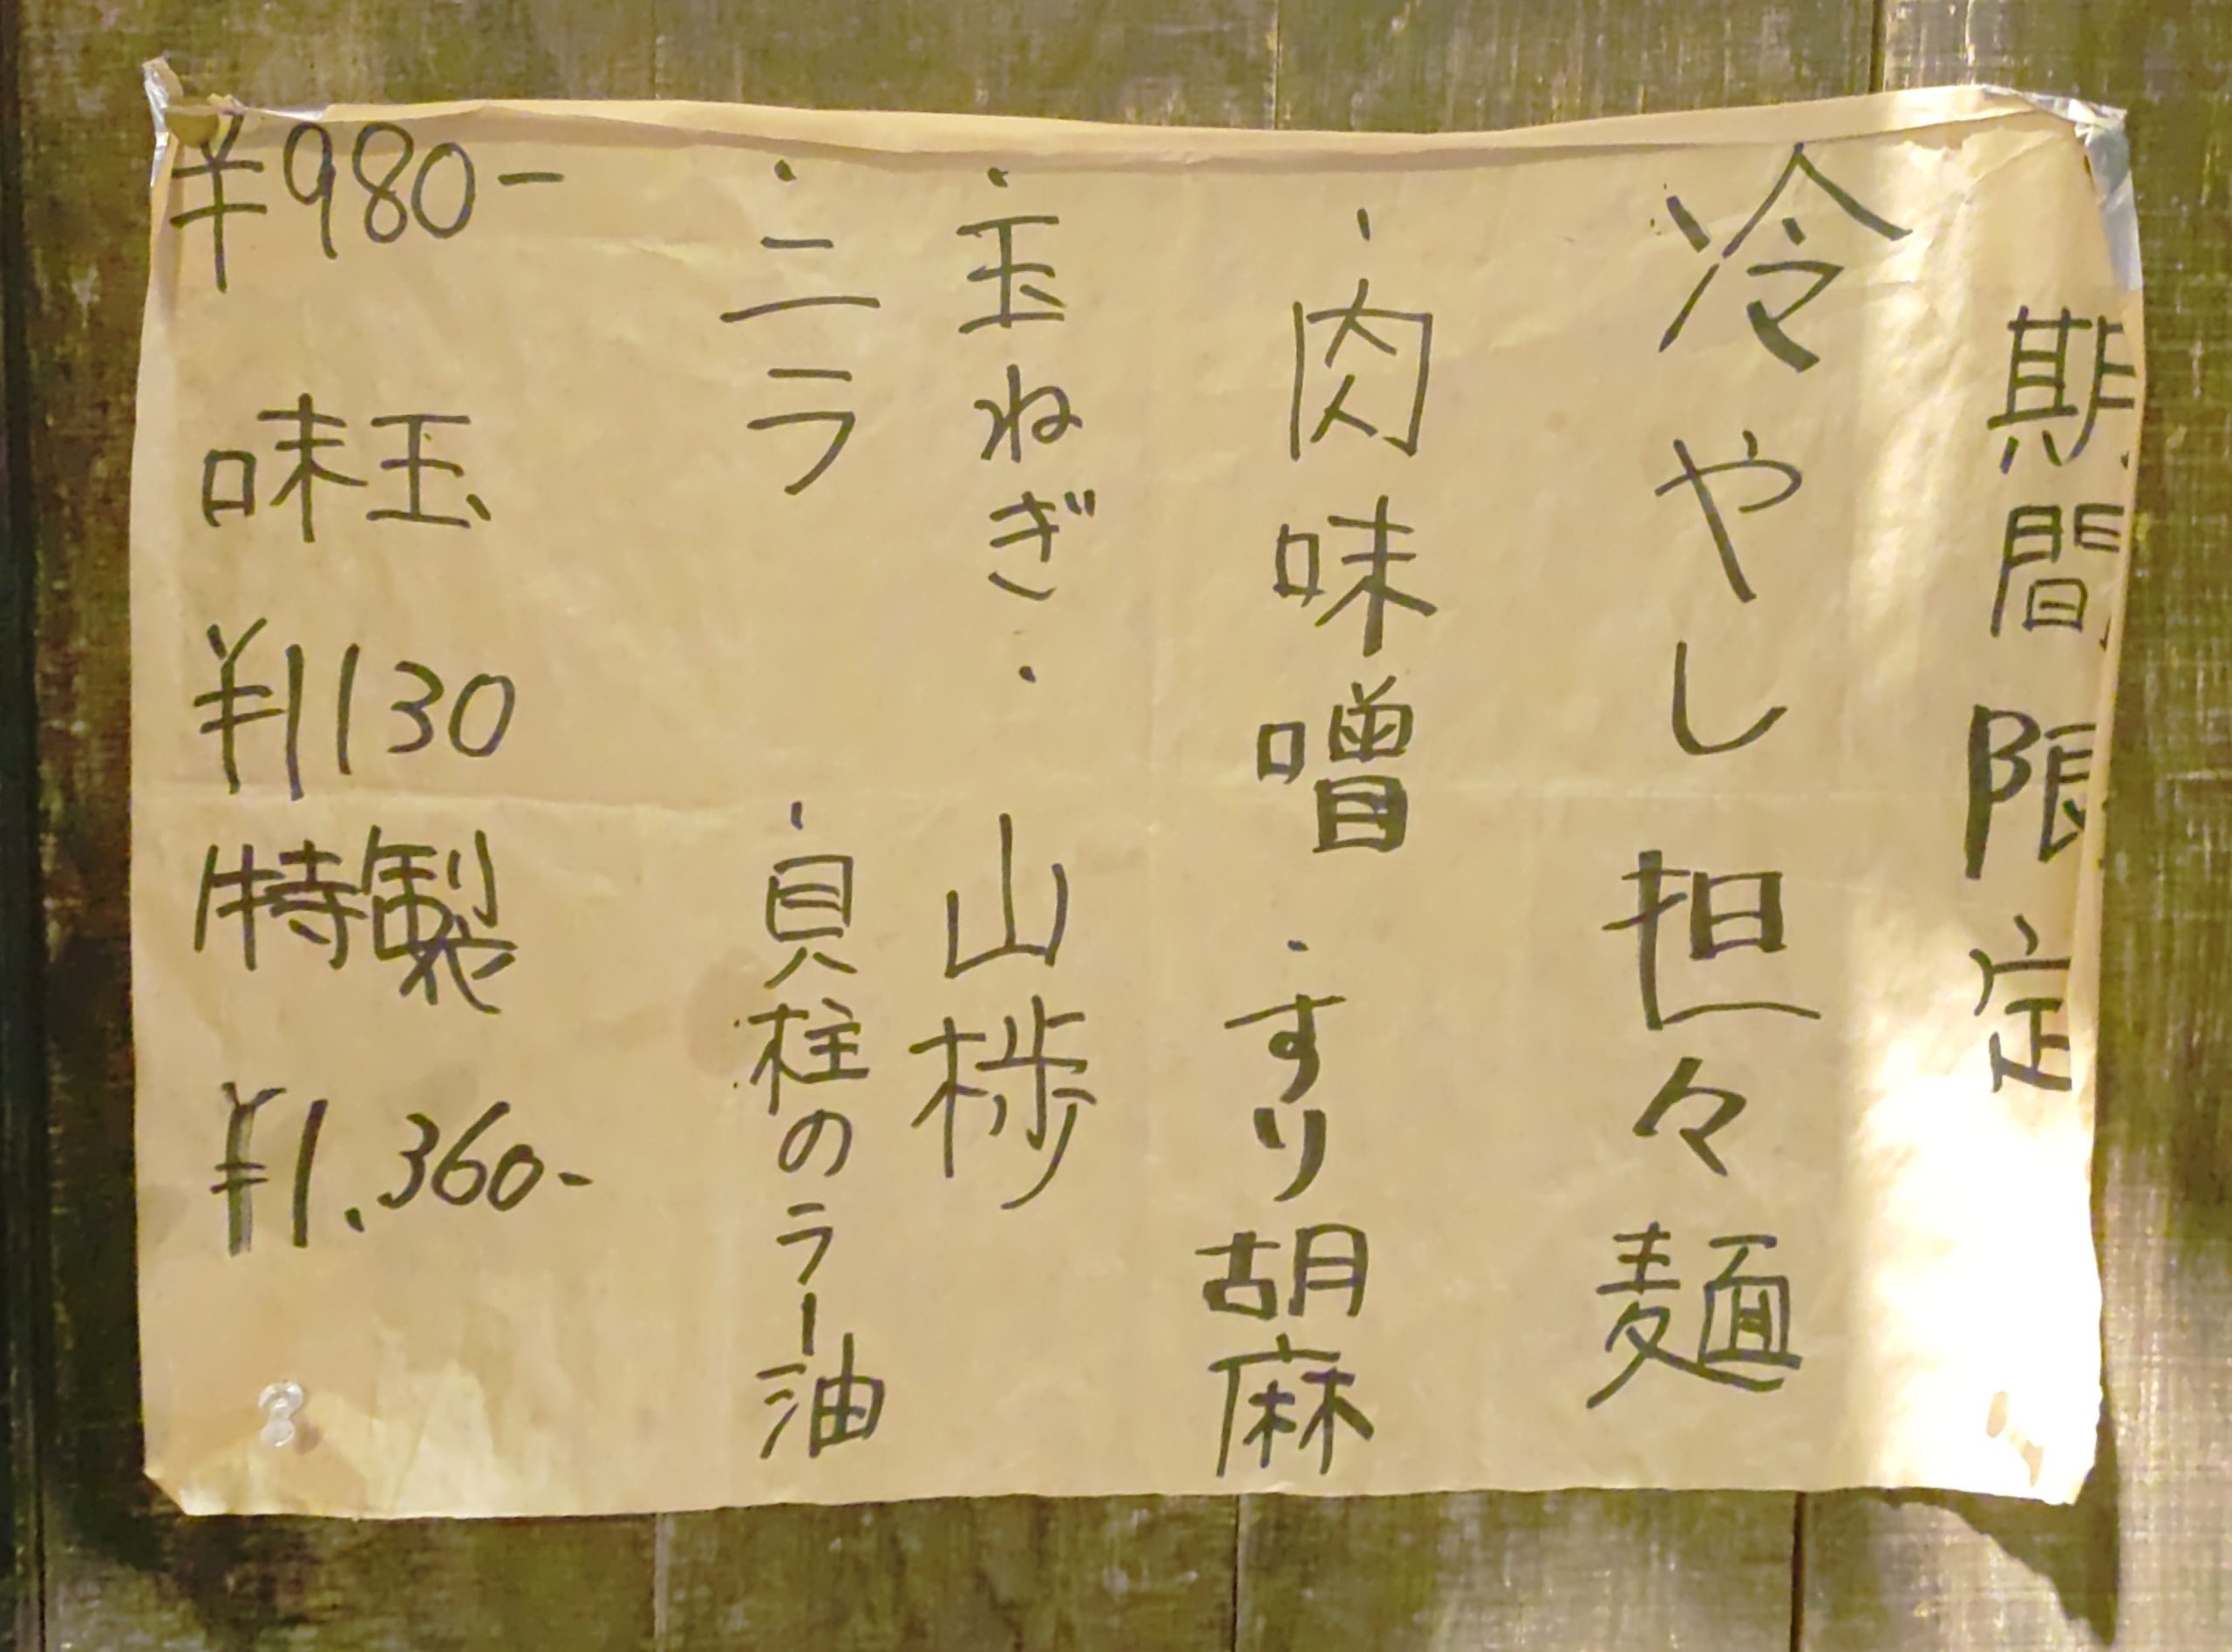 期間限定
冷やし担々麺
・肉味噌・すり胡麻
・玉ねぎ・山椒
・ニラ・貝柱のラー油
¥980-
味玉
¥1130
特製
¥1.360-